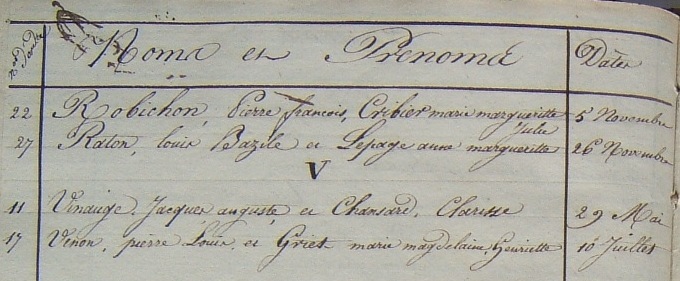 Nos d'ordre Noms et Prénoms Dates
22 Robichon, Pierre françois, Cribier marie margueritte 5 Novembre
Julie
27 Raton, louis Bazile et Lepage anne margueritte 26 Novembre
V
11 Vinauge, Jacques auguste et Chansard, Clarisse 29 Mai
17 Vinon, pierre Louis, et Griet marie magdelaine, henriette 10 Juillet